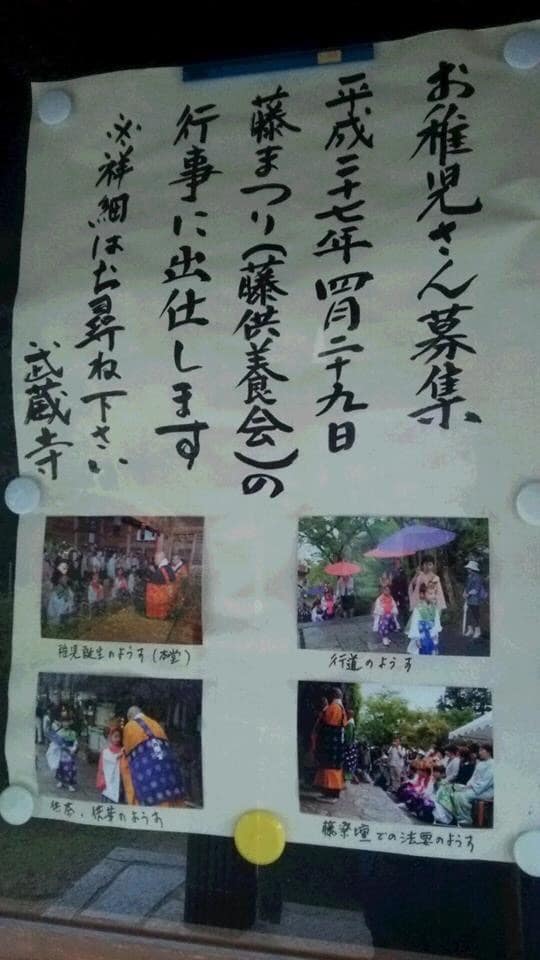 お稚児さん募集
平成二十七年四月二十九日
藤まつり(藤供養会)の
行事に出仕します
※祥細はお尋ね下さい
武蔵寺
稚児誕生のようす(本堂)
行道のようす
のようす
藤祭壇での法要のようす